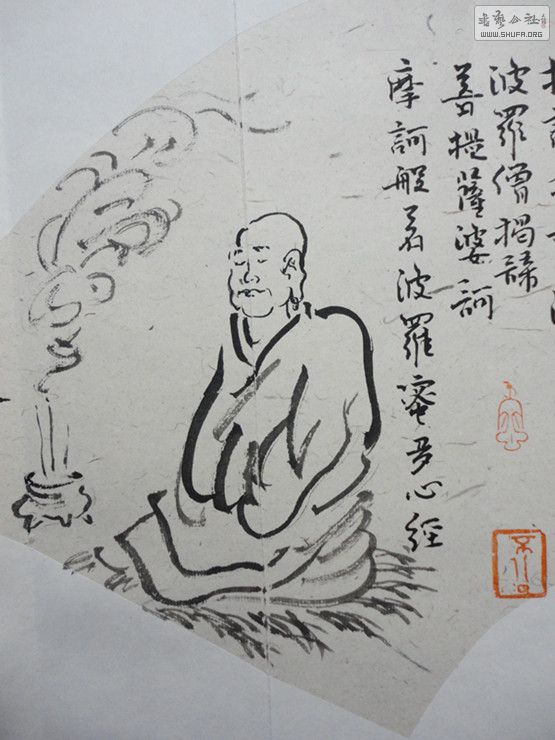 波羅僧揭諦
菩提薩婆訶
摩訶般若波羅蜜多心經
書藝公社
WWW.SHUFA.ORG